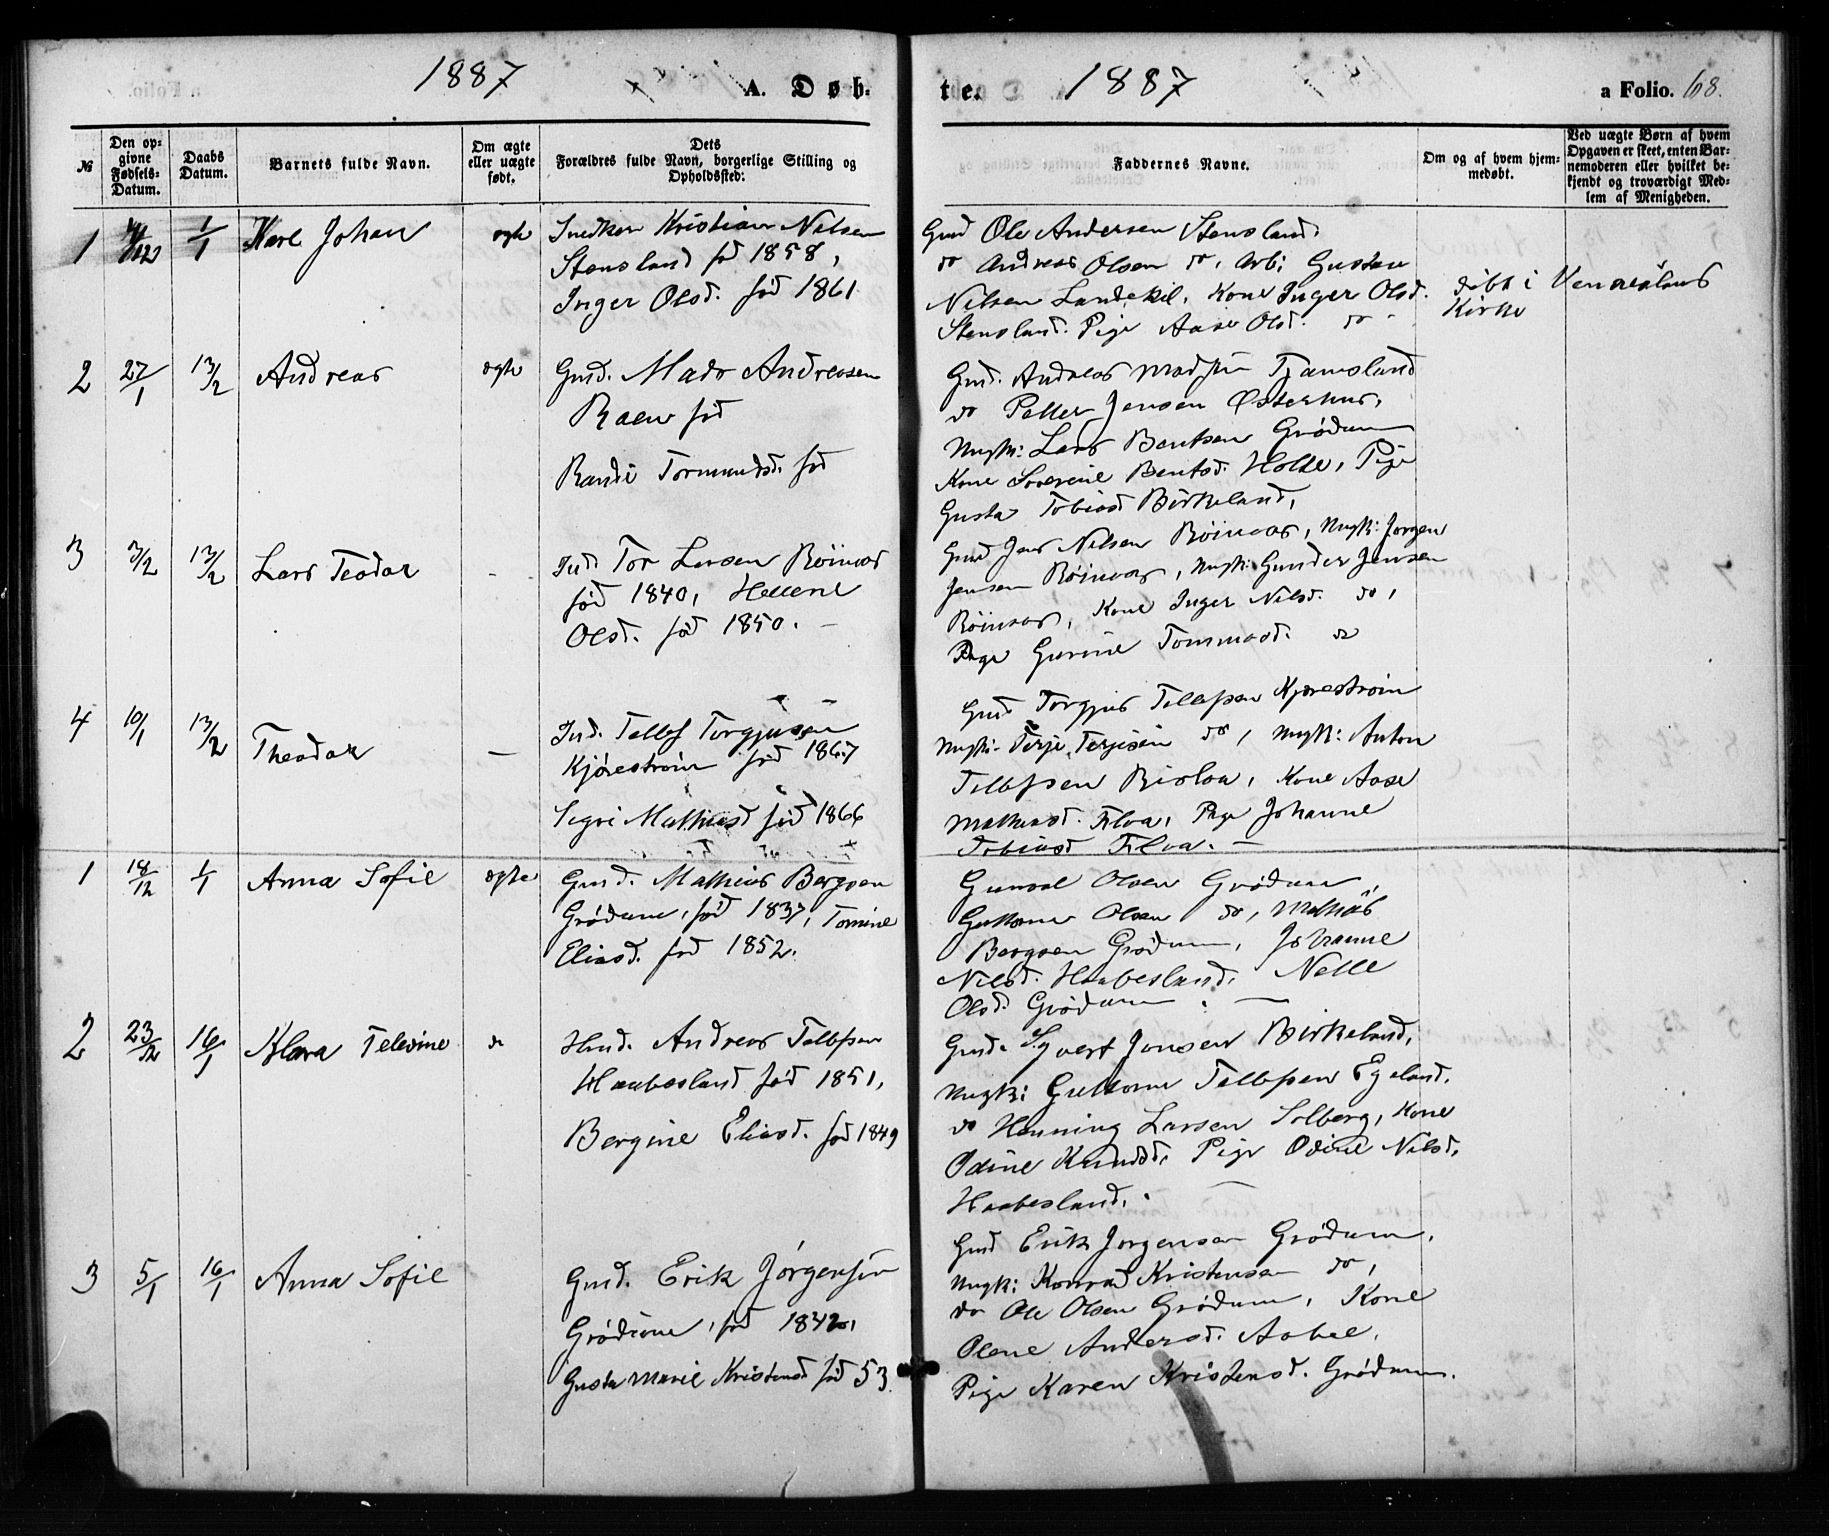 1887 A. Døb-
te. 1887 a Folio. 68.
№
Den op-
givne
Fødsels-
Datum.
Daabs
Datum.
Barnets fulde Navn.
Om ægte
eller uægte
født.
Dets
Forældres fulde Navn, borgerlige Stilling og
Opholdssted:
Faddernes Navne.
Om og af hvem hjem-
medøbt.
Ved uægte Børn af hvem
Opgaven er skeet, enten Bar-
nemoderen eller hvilket be-
kjendt og troværdigt Med-
lem af Menigheden.
1 1/1 Karl Johan ægte
Snedker Kristian Nilsen
Stensland fød 1858,
Inger Olsd. fød 1861
Gmd Ole Andersen Stensland
do Andreas Olsen do, Arb: Gustav
Nilsen Landekil, Kone Inger Olsd.
Stensland. Pige Aase Olsd. do
døbt i Venneslands
Kirke
2 27/1 13/2 Andreas ægte
Gmd. Mads Andreasen
Raen fød
Randi Tormundsd. fød
Gmd. Andreas Madsen Tjamsland
do Peller Jensen Østerhus,
Ungk: Lars Bentsen Grødum
Kone Severine Bentsd. Holte, Pige
Gusta Tobiasd Birkeland,
3 3/2 13/2 Lars Teodor -
Ind. Tor Larsen Röinaas
fød 1840, Hellene
Olsd. fød 1850. -
Gmd Jens Nilsen Röinaas, Ungk: Jorgen
Jensen Röinaas, Ungk: Gunder Jensen
Röinaas, Kone Inger Nilsd. do,
Pige Gurine Tommasd. do
4 10/1 13/2 Theodor -
Ind. Tellef Torgjusen
Kjørestrøm fød 1867
Sigri Mathiasd fød 1866
Gmd Torgjus Tellefsen Kjørestrøm
Ungk: Terje Terjesen do, Ungk: Anton
Tellefsen Risloa, Kone Aase
Mathiasd. Filoa, Pige Johanne
Tobiasd Filoa. -
1 18/12 1/1 Anna Sofie ægte
Gmd. Mathias Bergsen
Grødum, fød 1837, Tomine
Eliasd. fød 1852.
Gunval Olsen Grødum,
Guttorm Olsen do, Mathias
Bergsen Grødum, Johanne
Nilsd. Haabesland, Nelle
Olsd. Grødum. -
2 23/12 16/1 Klara Televine do
Hmd. Andreas Tellefsen
Haabesland fød 1851,
Bergine Eliasd. fød 1849
Gmd. Syvert Jonsen Birkeland,
Ungk: Guttorm Tellefsen Egeland,
do Henning Larsen Solberg, Kone
Odine Knudsd, Pige Odine Nilsd,
Haabesland. -
3 5/1 16/1 Anna Sofie
Gmd. Erik Jørgensen
Grødum, fød 1842,
Gusta Marie Kristensd fød 53.
Gmd Erik Jorgensen Grødum,
Ungk: Konrad Kristensen do,
do Ole Olsen Grødum, Kone
Olene Andersd. Aabel,
Pige Karen Kristensd. Grødum.